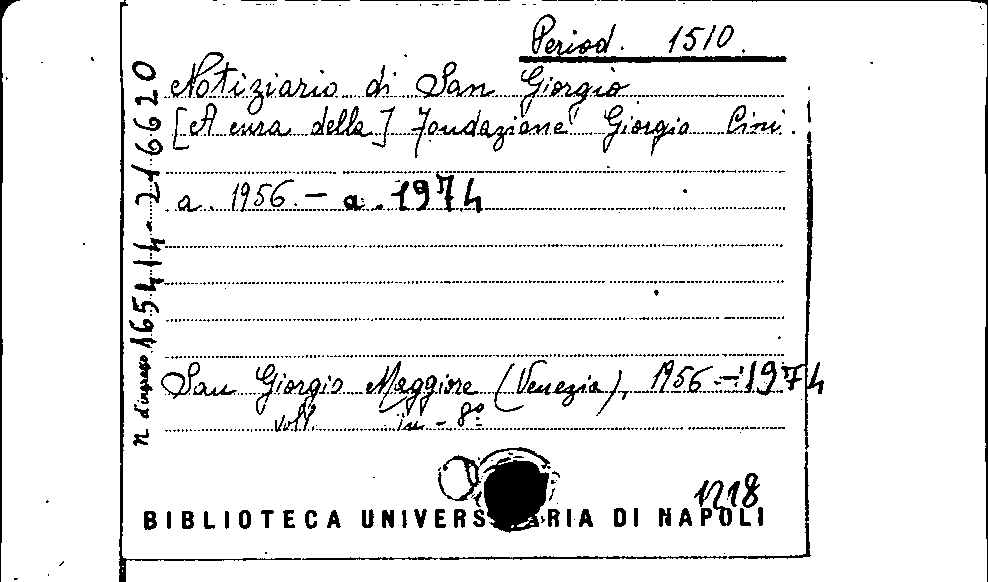 Period. 1510.
Notiziario di San Giorgio
[A cura della] Fondazione Giorgio Cini.
a. 1956. – a. 1974
San Giorgio Maggiore (Venezia), 1956 – 1974
voll. in - 8º
1218
BIBLIOTECA UNIVERSITARIA DI NAPOLI
n d'ingresso 165414 - 216620